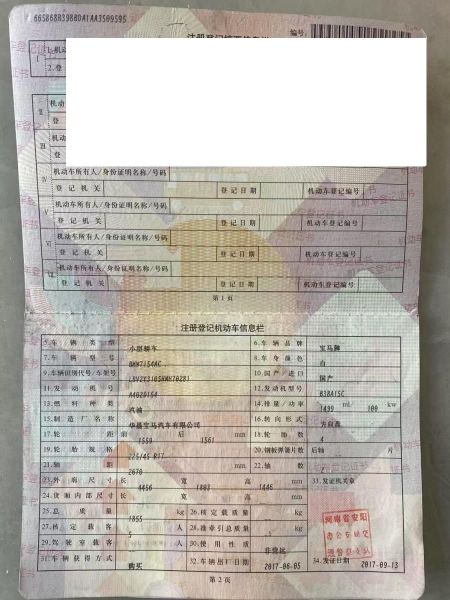 注册登记摘要信息栏
编号:
I
1.机动
2.登
II
机动
登
III
机动
登
IV
机动车所有人/身份证明名称/号码
登记机关 登记日期 机动车登记编号
V
机动车所有人/身份证明名称/号码
登记机关 登记日期 机动车登记编号
VI
机动车所有人/身份证明名称/号码
登记机关 登记日期 机动车登记编号
VII
机动车所有人/身份证明名称/号码
登记机关 登记日期 机动车登记编号
第1页
注册登记机动车信息栏
5.车辆类型 小型轿车 6.车辆品牌 宝马牌
7.车辆型号 BMW7154AC 8.车身颜色 白
9.车辆识别代号/车架号 10.国产/进口 国产
11.发动机号 12.发动机型号 B38A15C
13.燃料种类 汽油 14.排量/功率 1499 ml/ 100 kw
15.制造厂名称 华晨宝马汽车有限公司 16.转向形式 方向盘
17.轮距 前 1559 后 1561 mm 18.轮胎数 4
19.轮胎规格 225/45 R17 20.钢板弹簧片数 后轴 片
21.轴距 2670 mm 22.轴数 2
23.外廓尺寸 长 4456 宽 1803 高 1446 mm 33.发证机关章
24.货厢内部尺寸 长 宽 高 mm
25.总质量 1865 kg 26.核定载质量 kg
27.核定载客 5 人 28.准牵引总质量 kg
29.驾驶室载客 人 30.使用性质 非营运
31.车辆获得方式 购买 32.车辆出厂日期 2017-06-05 34.发证日期 2017-09-13
河南省安阳
市公安局交
通警察支队
第2页